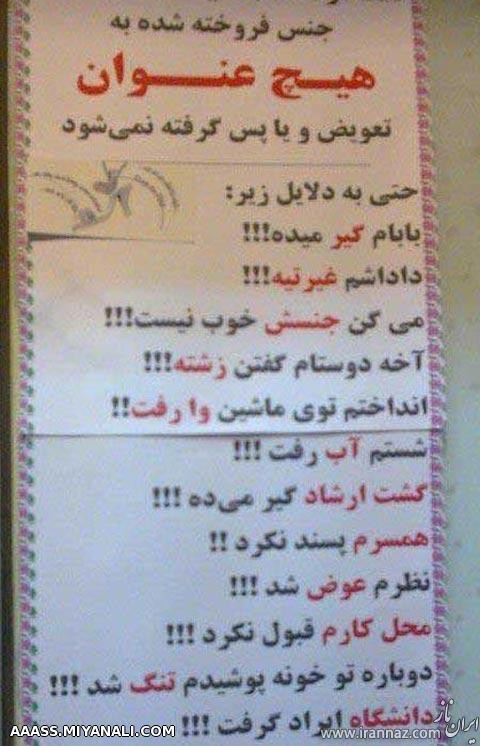 جنس فروخته شده به
هیـچ عنـــوان
تعویض و یا پس گرفته نمی‌شود
حتی به دلایل زیر:
بابام گیر میده!!!
داداشم غیرتیه!!!
می گن جنسش خوب نیست!!!
آخه دوستام گفتن زشته!!!
انداختم توی ماشین وا رفت!!
شستم آب رفت !!!
گشت ارشاد گیر می‌ده !!!
همسرم پسند نکرد !!
نظرم عوض شد !!!
محل کارم قبول نکرد !!!
دوباره تو خونه پوشیدم تنگ شد !!!
دانشگاه ایراد گرفت !!!
AAASS.MIYANALI.COM
ایران ناز
www.irannaz.com